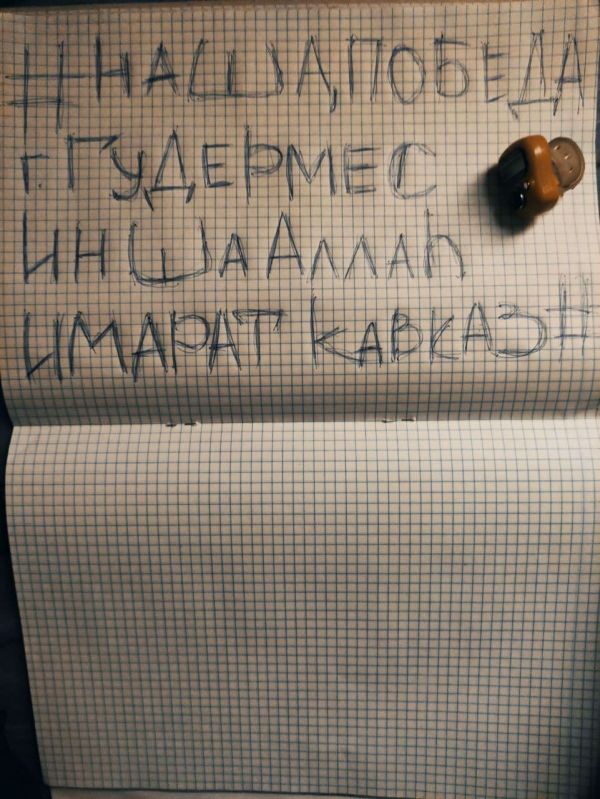 #НАША,ПОБЕДА
г. ГУДЕРМЕС
ИН ША АЛЛАh
ИМАРАТ КАВКАЗ#